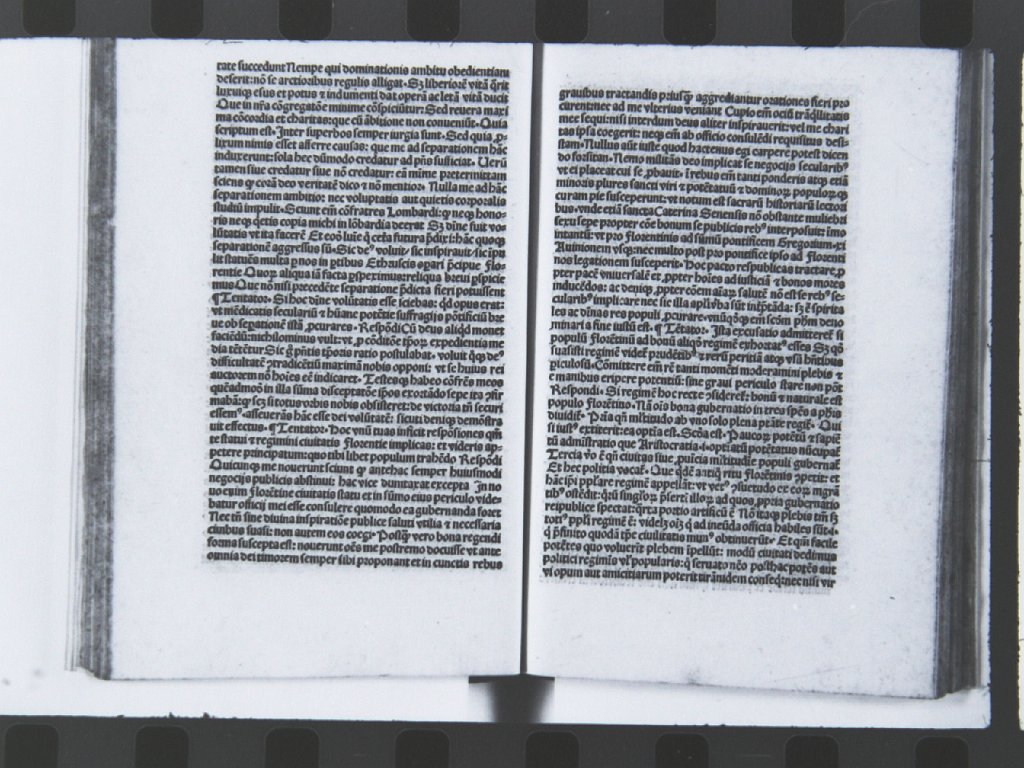 tate succedunt Nempe qui dominationis ambitu obedientiam
deserit: nō se arctioribus regulis alligat. Sꝫ liberiorē vitā q̄rit
luxuiqꝫ esus et potus ⁊ indumenti dat operā ac letā vitā ducit
Que in nr̄a cōgregatōe minime cōspiciūtur: Sed reuera maxi
ma cōcordia et charitas: que cū ābitione non conueniūt. Quia
scriptum est. Inter superbos semper iurgia sunt. Sed quia ꝓ
lixum nimis esset asserre causas: que me ad separationem hāc
induxerunt: sola hec dūmodo credatur ad pñs sufficiat. Uerū
tamen siue credatur siue nō credatur: eā mime pretermittam
sciens ꝙ corā deo veritatē dico ⁊ nō mentior. Nulla me ad hāc
separationem ambitio: nec voluptatis aut quietis corporalis
studiū impulit. Sciunt em̄ cōfratres Lombardi: ꝙ neqꝫ hono
ris neqꝫ q̄etis copia michi in lōbardia deerat Sꝫ dīne fuit vo
lūtatis vt ita facerē Et eoō luīe q̄ certa futura p̄dixi: hāc quoqꝫ
separationē aggressus sū. Sic de⁹ voluit: sic inspirauit: sic ip̄ꝫ
lit statuēs multa ꝑ nos in ꝑtibus Ethruscis oꝑari p̄cipue flo
rentie Quoꝝ aliqua iā facta ꝑspeximus: reliqua breui ꝑspicie
mus Que nō nisi precedēte separatione p̄dicta fieri potuissent
¶ Tentator. Si hoc dīne volūtatis esse sciebas: qd̄ opus erat:
vt mēdicatis seculariū ⁊ huāne potētie suffragijs pōtificiū bre
ue ob seꝑationē istā ꝓcurares. Respōdi Cū deus aliqd monet
faciēdū: nichilominus vult: vt ꝓ cōditōe tꝑoꝝ expedientia me
dia tētētur Sic g̊ p̄ntis tꝑoris ratio postulabat. voluit q̄qꝫ de⁹
difficultatē ⁊tradictiūꝫ maximā nobis opponi: vt se huius rei
auctorem nō hoīes eē indicaret. Testes qꝫ habeo cōfrēs meos
quēadmoō in illa sūma disceptatōe ip̄os exortādo sepe ita ɔfir
mabā: ꝙ scꝫ si totus orbis nobis obsisteret: de victoria tn̄ securi
essem⁹. asseuerās hāc esse dei volūtatē: sicuti deniqꝫ demōstra
uit effectus. ¶ Tentator. Hoc vnū tuas inficit respōsiones qm̄
te statui ⁊ regimini ciuitatis Florentie implicas: et videris ap
petere principatum: quo tibi libet populum trahēdo Respōdi
Quicunqꝫ me nouerunt sciunt ꝙ antehac semper huiusmodi
negocijs publicis abstinui: hac vice duntaxat excepta In no
uo enim florētine ciuitatis statu et in sūmo eius periculo vide
batur officij mei esse consulere quomodo ea gubernanda foret
Nec tn̄ sine diuina inspiratiōe publice saluti vtilia ⁊ necessaria
ciuibus suasi: non autem eos coegi. Postq̄ꝫ vero bona regendi
forma suscepta est: nouerunt oēs me postremo docuisse vt ante
omnia dei timorem semper sibi proponant et in cunctis rebus
grauibus tractandis priusq̄ꝫ aggrediantur orationes fieri pro
curent: nec ad me vlterius veniant Cupio em̄ ociū trāq̄llitatis
mee sequi: nisi interdum deus aliter inspirauerit: vel me chari
tas ipsa coegerit: neqꝫ em̄ ab officio consulēdi requisitus desi
stam. Nullus aūt iuste quod hactenus egi carpere potest dicen
do forsitan. Nemo militās deo implicat se negocijs secularib⁹
vt ei placeat cui se ꝓbauit. ī rebus em̄ tanti ponderis atqꝫ etiā
minoris plures sancti viri ⁊ potētatuū ⁊ dominoꝝ populoꝝqꝫ
curam pie susceperunt: vt notum est sacrarū historiarū lectori
bus. vnde etiā sancta Caterina Senensis nō obstante muliebri
sexu sepe propter cōe bonum se publicis reb⁹ interposuit: imo
intantū: vt pro Florentinis ad sūmū pontificem Gregorium. xi
Auinionem vsqꝫ: nec multo post pro pontifice ipso ad florenti
nos legationem susceperit. Hoc pacto res publicas tractare, ꝓ
pter pacē vniuersalē et ꝓpter hoīes ad iusticiā ⁊ bonos mores
inducēdos: ac deniqꝫ ꝓpter cōem aīaꝝ salutē nō est se reb⁹ se
cularib⁹ implicare nec sic illa apl̄i v̄ba sūt intep̄tāda: sꝫ ē spirita
les ac dīnas res populi ꝓcurare. vnūq̄dqꝫ em̄ scd̄m ph̄m deno
minari a fine iustū est. ¶ Tētator. Ista excusatio admitteret̄ si
populū Florētinū ad bonū aliqō regimē exhortat⁹ esses Sꝫ qō
suasisti regimē videt̄ prudētib⁹ ⁊ rerū peritiā atqꝫ vsū hn̄tibus
ꝑiculosū. Cōmittere em̄ rē tanti momēti moderamini plebis ⁊
e manibus eripere potentiū: sine graui periculo stare non pōt
Respondi. Si regimē hoc recte ɔsideret̄: bonū ⁊ naturale est
populo florētino. Nā oīs bona gubernatio in tres sp̄es a ph̄is
diuidit̄. Prīa qn̄ mltitudo ab vno solo plena ptāte regit̄. Qui
si iust⁹ extiterit: ea optīa est. Scōa est. Paucoꝝ potētū ⁊ sapiē
tū admīstratio que Aristocratia. i. optiatū potētatus nūcupat̄
Tercia vo ē qn̄ ciuitas siue ꝓuicia mltitudīe populi gubernat̄
Et hec politia vocat̄. Que qdē antiq̄ ritu Florētinis ɔpetit: et
hāc ip̄i ppl̄are regimē appellāt: vt vet⁹ ɔsuetudo et eoꝝ mgrā
tib⁹ ostēdit: qr̄ si singl̄oꝝ p̄sertī illoꝝ ad quos ꝓpria gubernatio
reipublice spectat: qr̄ta portio artificū ē Nō itaqꝫ plebis tm̄ sꝫ
toti⁹ ppl̄i regimē ē: videlꝫ oīꝫ q̄ ad ineūda officia habiles sūt. i.
q̄ p̄finito quodā tꝑe ciuitatis mun⁹ obtinuerūt. Et qm̄ facile
potētes quo voluerīt plebem īpellūt: modū ciuitati dedimus
politici regimīs vl̓ popularis: q̄ seruato nēo posthac potēs aut
vi opum aut amicitiarum poterit tirānidem conseq̄: nec nisi vir